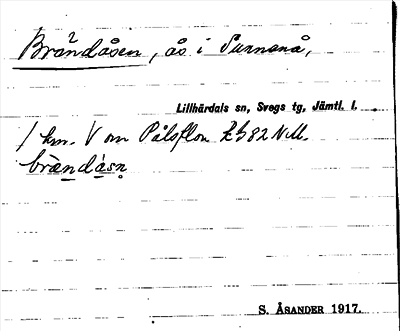 Brändåsen, ås i Surnanå,
Lillhärdals sn, Svegs tg, Jämtl. l.
1 km. V om Pålsflon Lh 82 N.M.
brändåsn
S. ÅSANDER 1917.